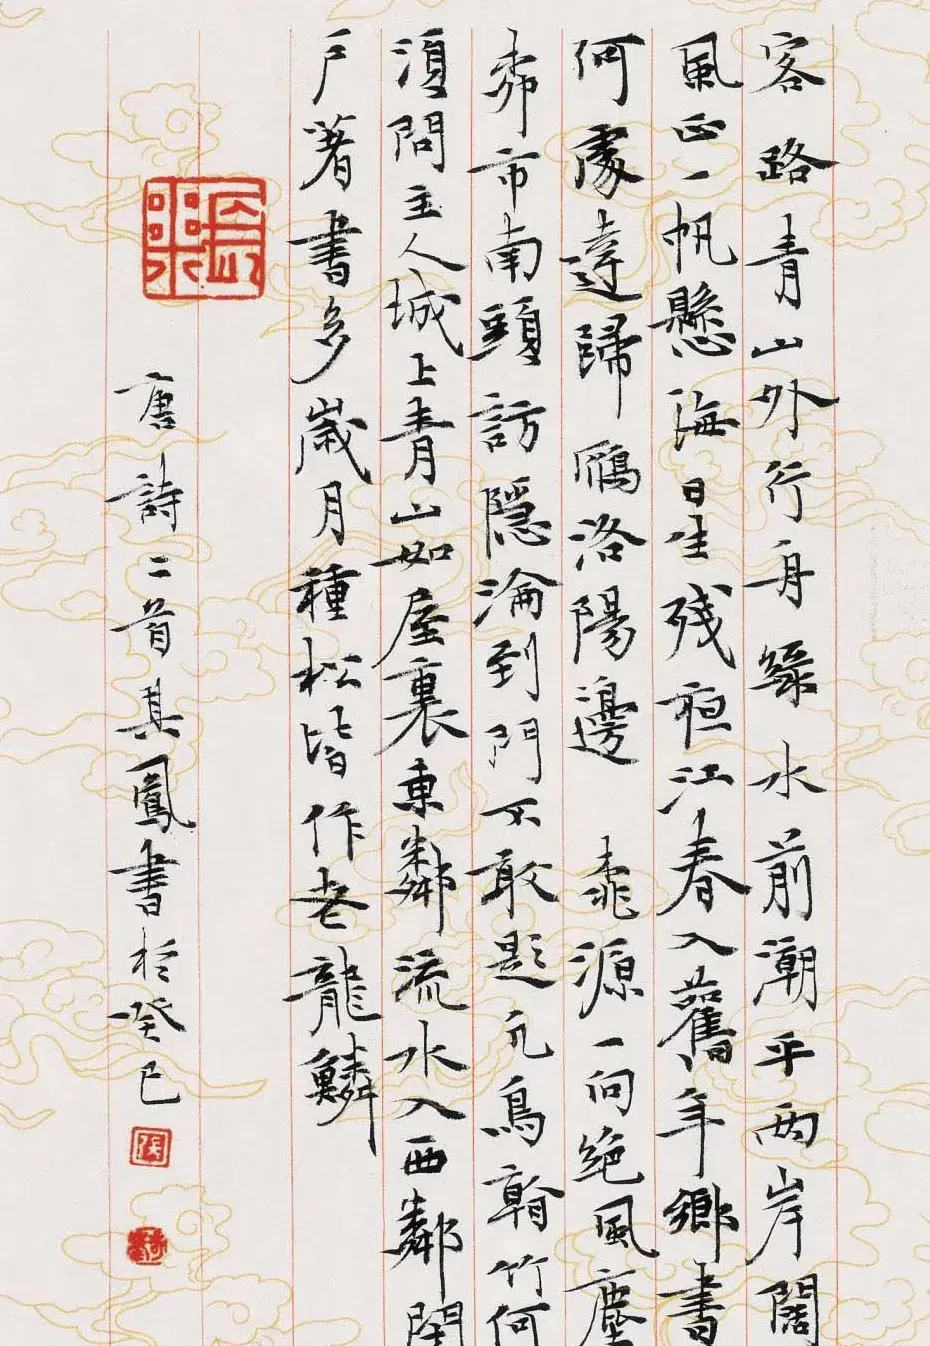 客路青山外行舟綠水前潮平兩岸闊
風正一帆懸海日生殘夜江春入舊年鄉書
何處達歸鴈洛陽邊 桃源一向絕風塵
柳市南頭訪隱淪到門不敢題凡鳥看竹何
須問主人城上青山如屋裏東鄰流水入西鄰閉
戶著書多歲月種松皆作老龍鱗
唐詩二首其鳳書於癸巳